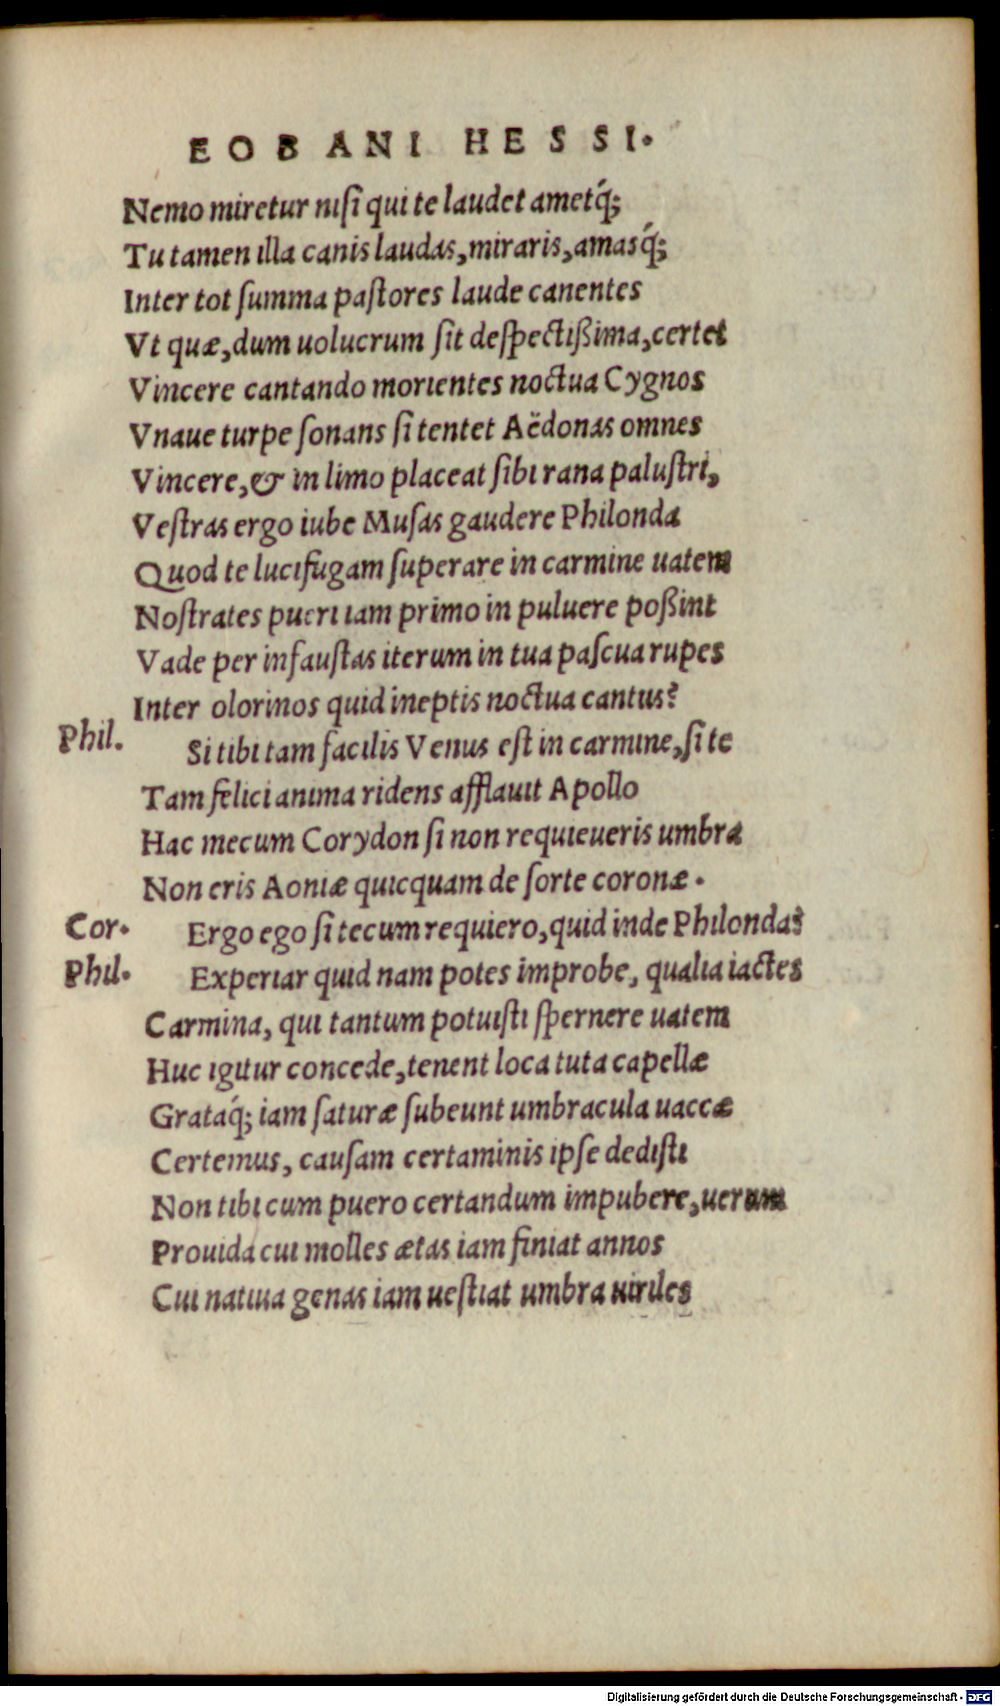 EOBANI HESSI.
Nemo miretur niſi qui te laudet ametq́;
Tu tamen illa canis laudas, miraris, amasq́;
Inter tot ſumma paſtores laude canentes
Vt quæ, dum uolucrum ſit deſpectißima, certet
Vincere cantando morientes noctua Cygnos
Vnaue turpe ſonans ſi tentet Aëdonas omnes
Vincere, & in limo placeat ſibi rana paluſtri,
Veſtras ergo iube Muſas gaudere Philonda
Quod te lucifugam ſuperare in carmine uatem
Noſtrates pueri iam primo in puluere poßint
Vade per infauſtas iterum in tua paſcua rupes
Inter olorinos quid ineptis noctua cantus?
Phil. Si tibi tam facilis Venus eſt in carmine, ſi te
Tam felici anima ridens afflauit Apollo
Hac mecum Corydon ſi non requieueris umbra
Non eris Aoniæ quicquam de ſorte coronæ.
Cor. Ergo ego ſi tecum requiero, quid inde Philonda?
Phil. Experiar quid nam potes improbe, qualia iactes
Carmina, qui tantum potuiſti ſpernere uatem
Huc igitur concede, tenent loca tuta capellæ
Grataq́; iam ſaturæ ſubeunt umbracula uaccæ
Certemus, cauſam certaminis ipſe dediſti
Non tibi cum puero certandum impubere, uerum
Prouida cui molles ætas iam finiat annos
Cui natiua genas iam ueſtiat umbra uiriles
Digitalisierung gefördert durch die Deutsche Forschungsgemeinschaft - DFG